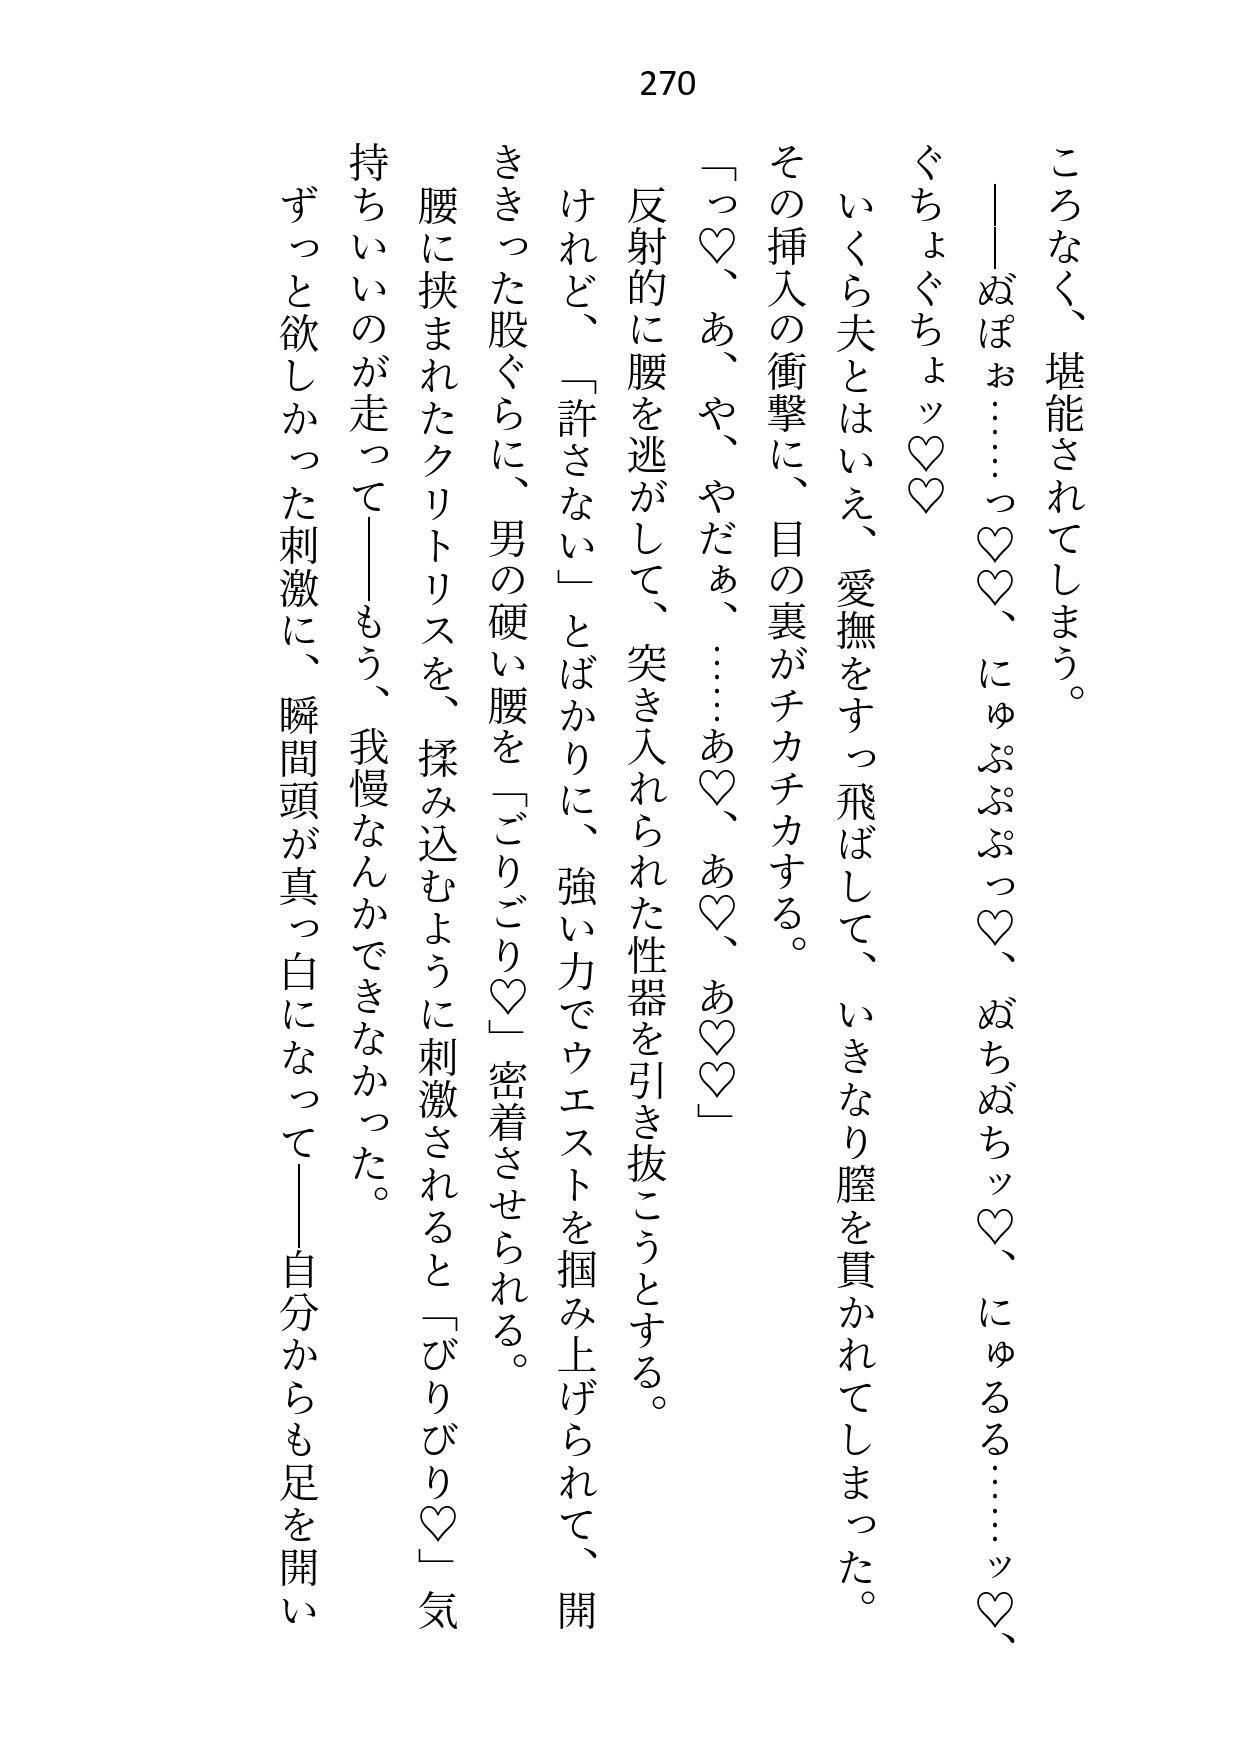 270
ころなく、堪能されてしまう。
――ぬぽぉ……っ♡♡、にゅぷぷぷっ♡、ぬちぬちッ♡、にゅるる……ッ♡、
ぐちょぐちょッ♡♡
いくら夫とはいえ、愛撫をすっ飛ばして、いきなり膣を貫かれてしまった。
その挿入の衝撃に、目の裏がチカチカする。
「っ♡、あ、や、やだぁ、……あ♡、あ♡、あ♡♡」
反射的に腰を逃がして、突き入れられた性器を引き抜こうとする。
けれど、「許さない」とばかりに、強い力でウエストを掴み上げられて、開
ききった股ぐらに、男の硬い腰を「ごりごり♡」密着させられる。
腰に挟まれたクリトリスを、揉み込むように刺激されると「びりびり♡」気
持ちいいのが走って――もう、我慢なんかできなかった。
ずっと欲しかった刺激に、瞬間頭が真っ白になって――自分からも足を開い